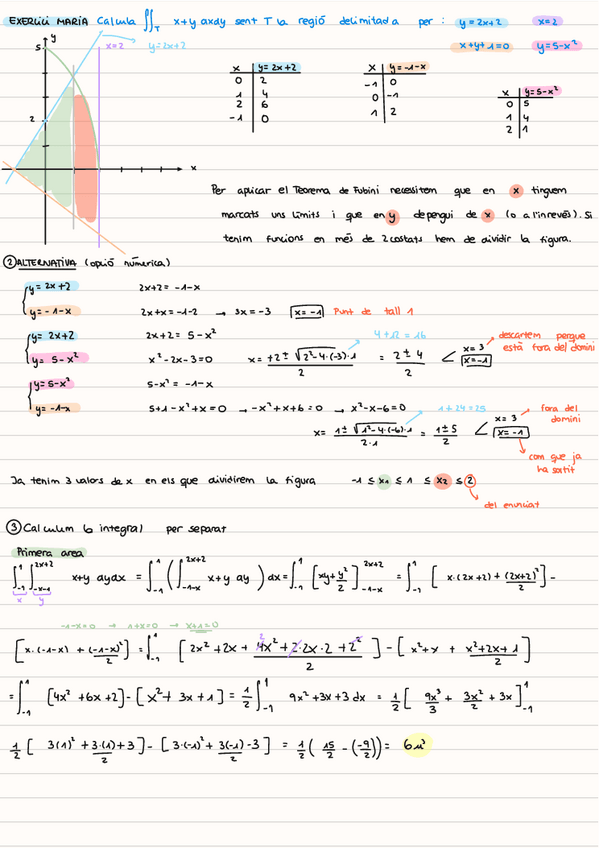 EXERCICI MARIA Calcula ∬_T x+y dxdy sent T la regió delimitada per: y=2x+2 x=2
x+y+1=0 y=5-x²
y
5
x=2
y=2x+2
2
x
x | y=2x+2
0 | 2
1 | 4
2 | 6
-1 | 0
x | y=-1-x
-1 | 0
0 | -1
1 | 2
x | y=5-x²
0 | 5
1 | 4
2 | 1
Per aplicar el Teorema de Fubini necessitem que en x tinguem
marcats uns límits i que en y depengui de x (o a l'inrevés). Si
tenim funcions en més de 2 costats hem de dividir la figura.
② ALTERNATIVA (opció numèrica)
y=2x+2 2x+2=-1-x
y=-1-x 2x+x=-1-2 → 3x=-3 x=-1 Punt de tall 1
y=2x+2 2x+2=5-x² 4+12=16 descartem perque
està fora del domini
y=5-x² x²-2x-3=0 x= +2±√(2²-4·(-3)·1) / 2 = 2±4 / 2 x=3 x=-1
y=5-x² 5-x²=-1-x
y=-1-x 5+1-x²+x=0 → -x²+x+6=0 → x²-x-6=0 1+24=25 fora del
domini
x= 1±√(1²-4·(-6)·1) / 2·1 = 1±5 / 2 x=3 x=-1
com que ja
ha sortit
Ja tenim 3 valors de x en els que dividirem la figura -1≤x1≤1≤x2≤2
del enunciat
③ Calculum la integral per separat
Primera area
∫_-1^1 ∫_-x-1^2x+2 x+y dydx = ∫_-1^1 (∫_-1-x^2x+2 x+y dy) dx = ∫_-1^1 [xy+y²/2]_-1-x^2x+2 = ∫_-1^1 [x·(2x+2)+(2x+2)²/2] -
x y
-1-x=0 → 1+x=0 → x+1=0
[x·(-1-x)+(-1-x)²/2] = ∫_-1^1 [2x²+2x+ 4x²+2·2x·2+2²/2] - [x²+x + x²+2x+1/2]
= ∫_-1^1 [4x²+6x+2]-[x²+3x+1] = 1/2 ∫_-1^1 9x²+3x+3 dx = 1/2 [9x³/3 + 3x²/2 + 3x]_-1^1
1/2 [3(1)²+3·(1)+3/2] - [3·(-1)²+3(-1)-3/2] = 1/2 (15/2 - (-9/2)) = 6u³